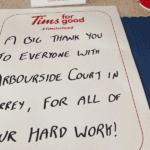 Tims for good
#Timsforgood
A BIG THANK YOU
TO EVERYONE WITH
ARBOURSIDE COURT IN
RREY, FOR ALL OF
UR HARD WORK!